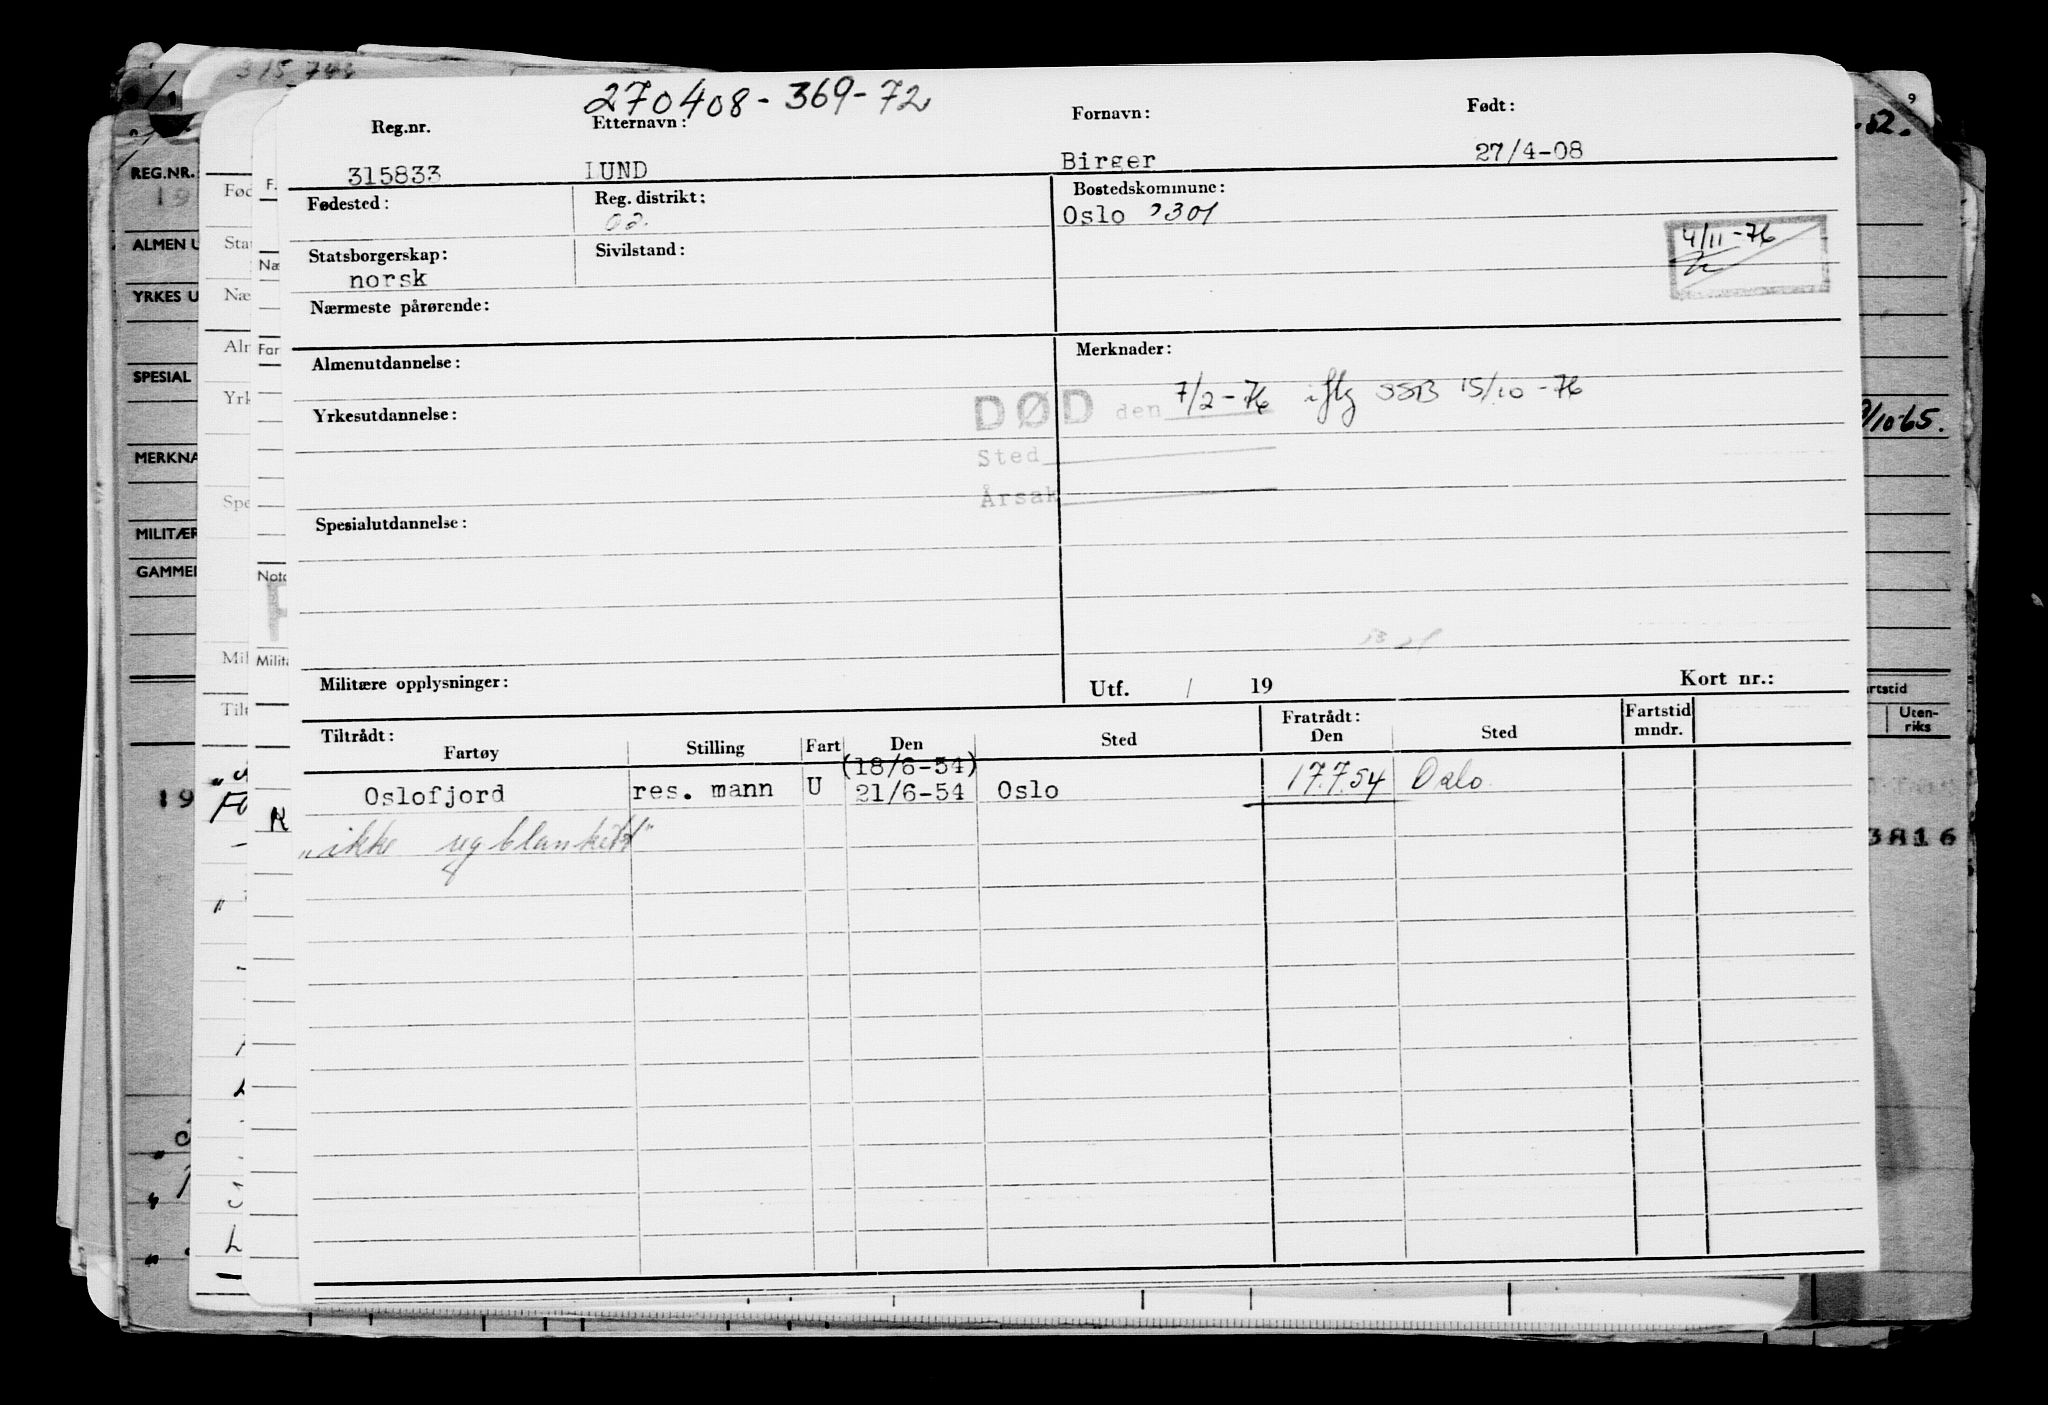 315 744
270408-369-72
Reg.nr. Etternavn: Fornavn: Født:
315833 LUND Birger 27/4-08
Fødested: Reg. distrikt: Bostedskommune:
02. Oslo 0301
Statsborgerskap: Sivilstand: 4/11-76
norsk
Nærmeste pårørende:
Almenutdannelse: Merknader:
DØD den 7/2-76 iflg SSB 15/10-76
Yrkesutdannelse:
Sted
Årsak
Spesialutdannelse:
Militære opplysninger: Utf. / 19 Kort nr.:
Tiltrådt: Fratrådt: Fartstid
Fartøy Stilling Fart Den Sted Den Sted mndr.
(18/6-54)
Oslofjord res. mann U 21/6-54 Oslo 17.7.54 Oslo
"ikke rygblankett"
REG.NR.
19
ALMEN U
YRKES U
SPESIAL
MERKNA
MILITÆR
GAMMEL
19
Fød
Stat
Næ
Alm
Yrk
Spe
Mil
Tilt
F.
Næ
Far
Note
Milit
9
-52.
/10-65.
artstid
Uten-
riks
3816